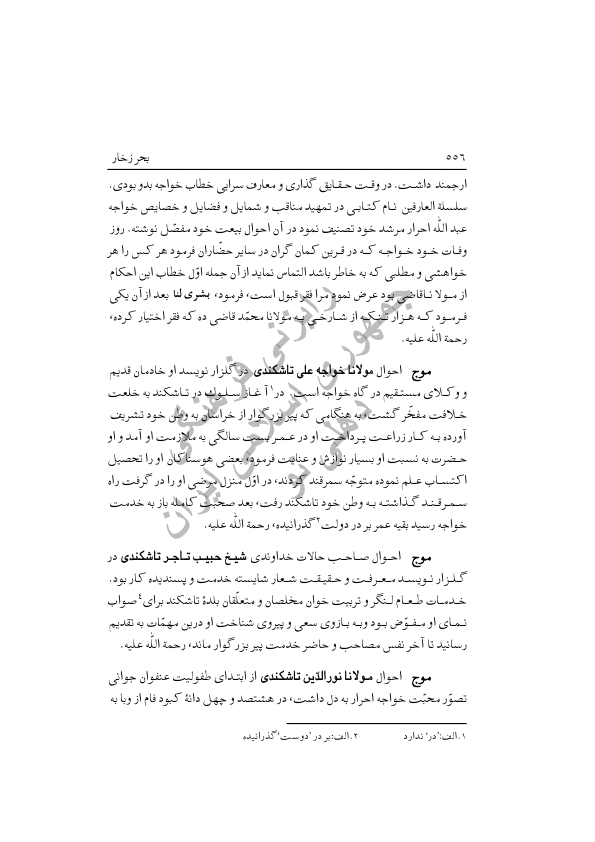 ۵۵۶ بحر زخار
ارجمند داشت. در وقت حقایق گذاری و معارف سرایی خطاب خواجه بدو بودی.
سلسلة العارفین نام کتابی در تمهید مناقب و شمایل و فضایل و خصایص خواجه
عبد الله احرار مرشد خود تصنیف نمود در آن احوال بیعت خود مفصّل نوشته. روز
وفات خود خواجه که در قرین کمان گران در سایر حضّاران فرمود هر کس را هر
خواهشی و مطلبی که به خاطر باشد التماس نماید از آن جمله اوّل خطاب این احکام
از مولا نا قاضی بود عرض نمود مرا فقر قبول است، فرمود، بشری لنا بعد از آن یکی
فرمود که هزار تنکه از شارخی به مولانا محمّد قاضی ده که فقر اختیار کرده،
رحمة الله علیه.
موج احوال مولانا خواجه علی تاشکندی در گلزار نویسد او خادمان قدیم
و وکلای مستقیم در گاه خواجه است. در۱ آغاز سلوک در تاشکند به خلعت
خلافت مفخّر گشت، به هنگامی که پیر بزرگوار از خراسان به وطن خود تشریف
آورده به کار زراعت پرداخت او در عمر بست سالگی به ملازمت او آمد و او
حضرت به نسبت او بسیار نوازش و عنایت فرمود، بعضی هوسناکان او را تحصیل
اکتساب علم نموده متوجّه سمرقند کردند، در اوّل منزل مرضی او را در گرفت راه
سمرقند گذاشته به وطن خود تاشکند رفت، بعد صحّت کامله باز به خدمت
خواجه رسید بقیه عمر بر در دولت۲ گذرانیده، رحمة الله علیه.
موج احوال صاحب حالات خداوندی شیخ حبیب تاجر تاشکندی در
گلزار نویسد معرفت و حقیقت شعار شایسته خدمت و پسندیده کار بود.
خدمات طعام لنگر و تربیت خوان مخلصان و متعلّقان بلدهٔ تاشکند برای٤ صواب
نمای او مفوّض بود وبه بازوی سعی و پیروی شناخت او درین مهمّات به تقدیم
رسانید تا آخر نفس مصاحب و حاضر خدمت پیر بزرگوار ماند، رحمة الله علیه.
موج احوال مولانا نورالدّین تاشکندی از ابتدای طفولیت عنفوان جوانی
تصوّر محبّت خواجه احرار به دل داشت، در هشتصد و چهل دانهٔ کبود فام از وبا به
۱.الف:'در' ندارد ۲.الف:بر در 'دوست' گذرانیده
رایزنی فرهنگی
جمهوری اسلامی ایران
دهلی نو